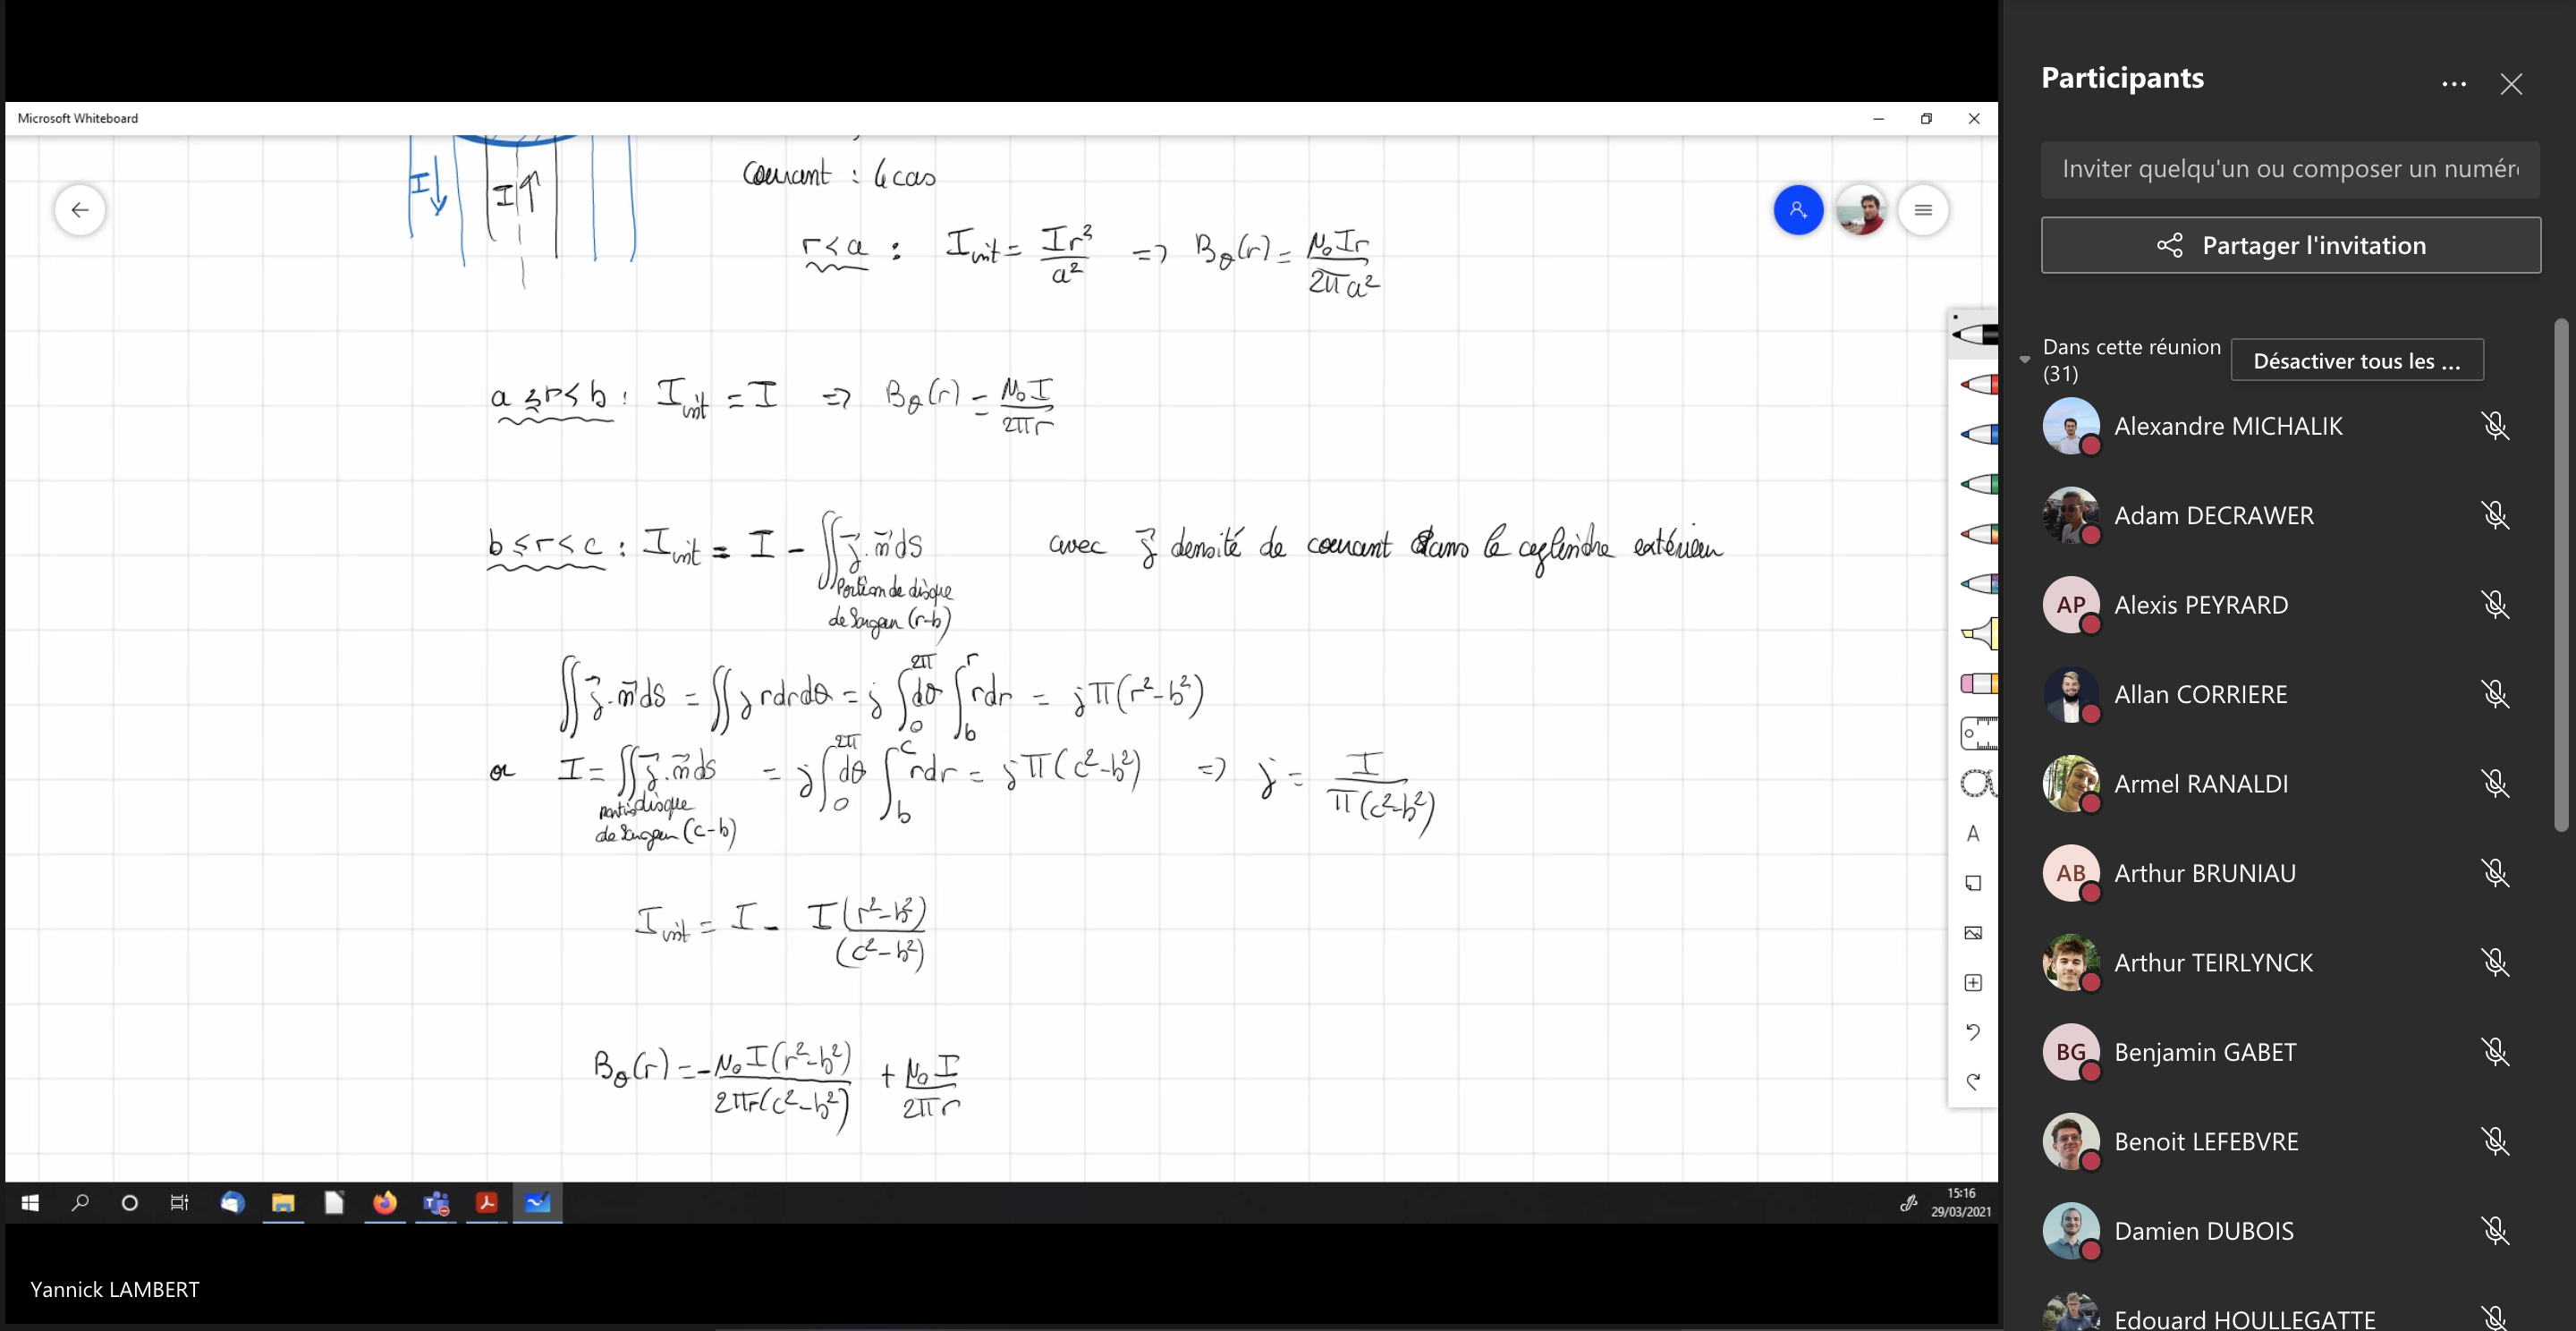 Microsoft Whiteboard
I↓ I↑
Courant : 4 cas
r < a : I_int = Ir²/a² => B_θ(r) = μ₀Ir/2πa²
a ≤ r < b : I_int = I => B_θ(r) = μ₀I/2πr
b ≤ r < c : I_int = I - ∬ j⃗.n⃗ dS avec j⃗ densité de courant dans le cylindre extérieur
Portion de disque
de largeur (r-b)
∬ j⃗.n⃗ dS = ∬ j r dr dθ = j ∫₀^2π dθ ∫_b^r r dr = jπ(r²-b²)
or I = ∬ j⃗.n⃗ dS = j ∫₀^2π dθ ∫_b^c r dr = jπ(c²-b²) => j = I/π(c²-b²)
disque
de largeur (c-b)
I_int = I - I(r²-b²)/(c²-b²)
B_θ(r) = -μ₀I(r²-b²)/2πr(c²-b²) + μ₀I/2πr
A
15:16
29/03/2021
Yannick LAMBERT
Participants
Inviter quelqu'un ou composer un numér
Partager l'invitation
Dans cette réunion
(31)
Désactiver tous les ...
Alexandre MICHALIK
Adam DECRAWER
AP Alexis PEYRARD
Allan CORRIERE
Armel RANALDI
AB Arthur BRUNIAU
Arthur TEIRLYNCK
BG Benjamin GABET
Benoit LEFEBVRE
Damien DUBOIS
Edouard HOULLEGATTE